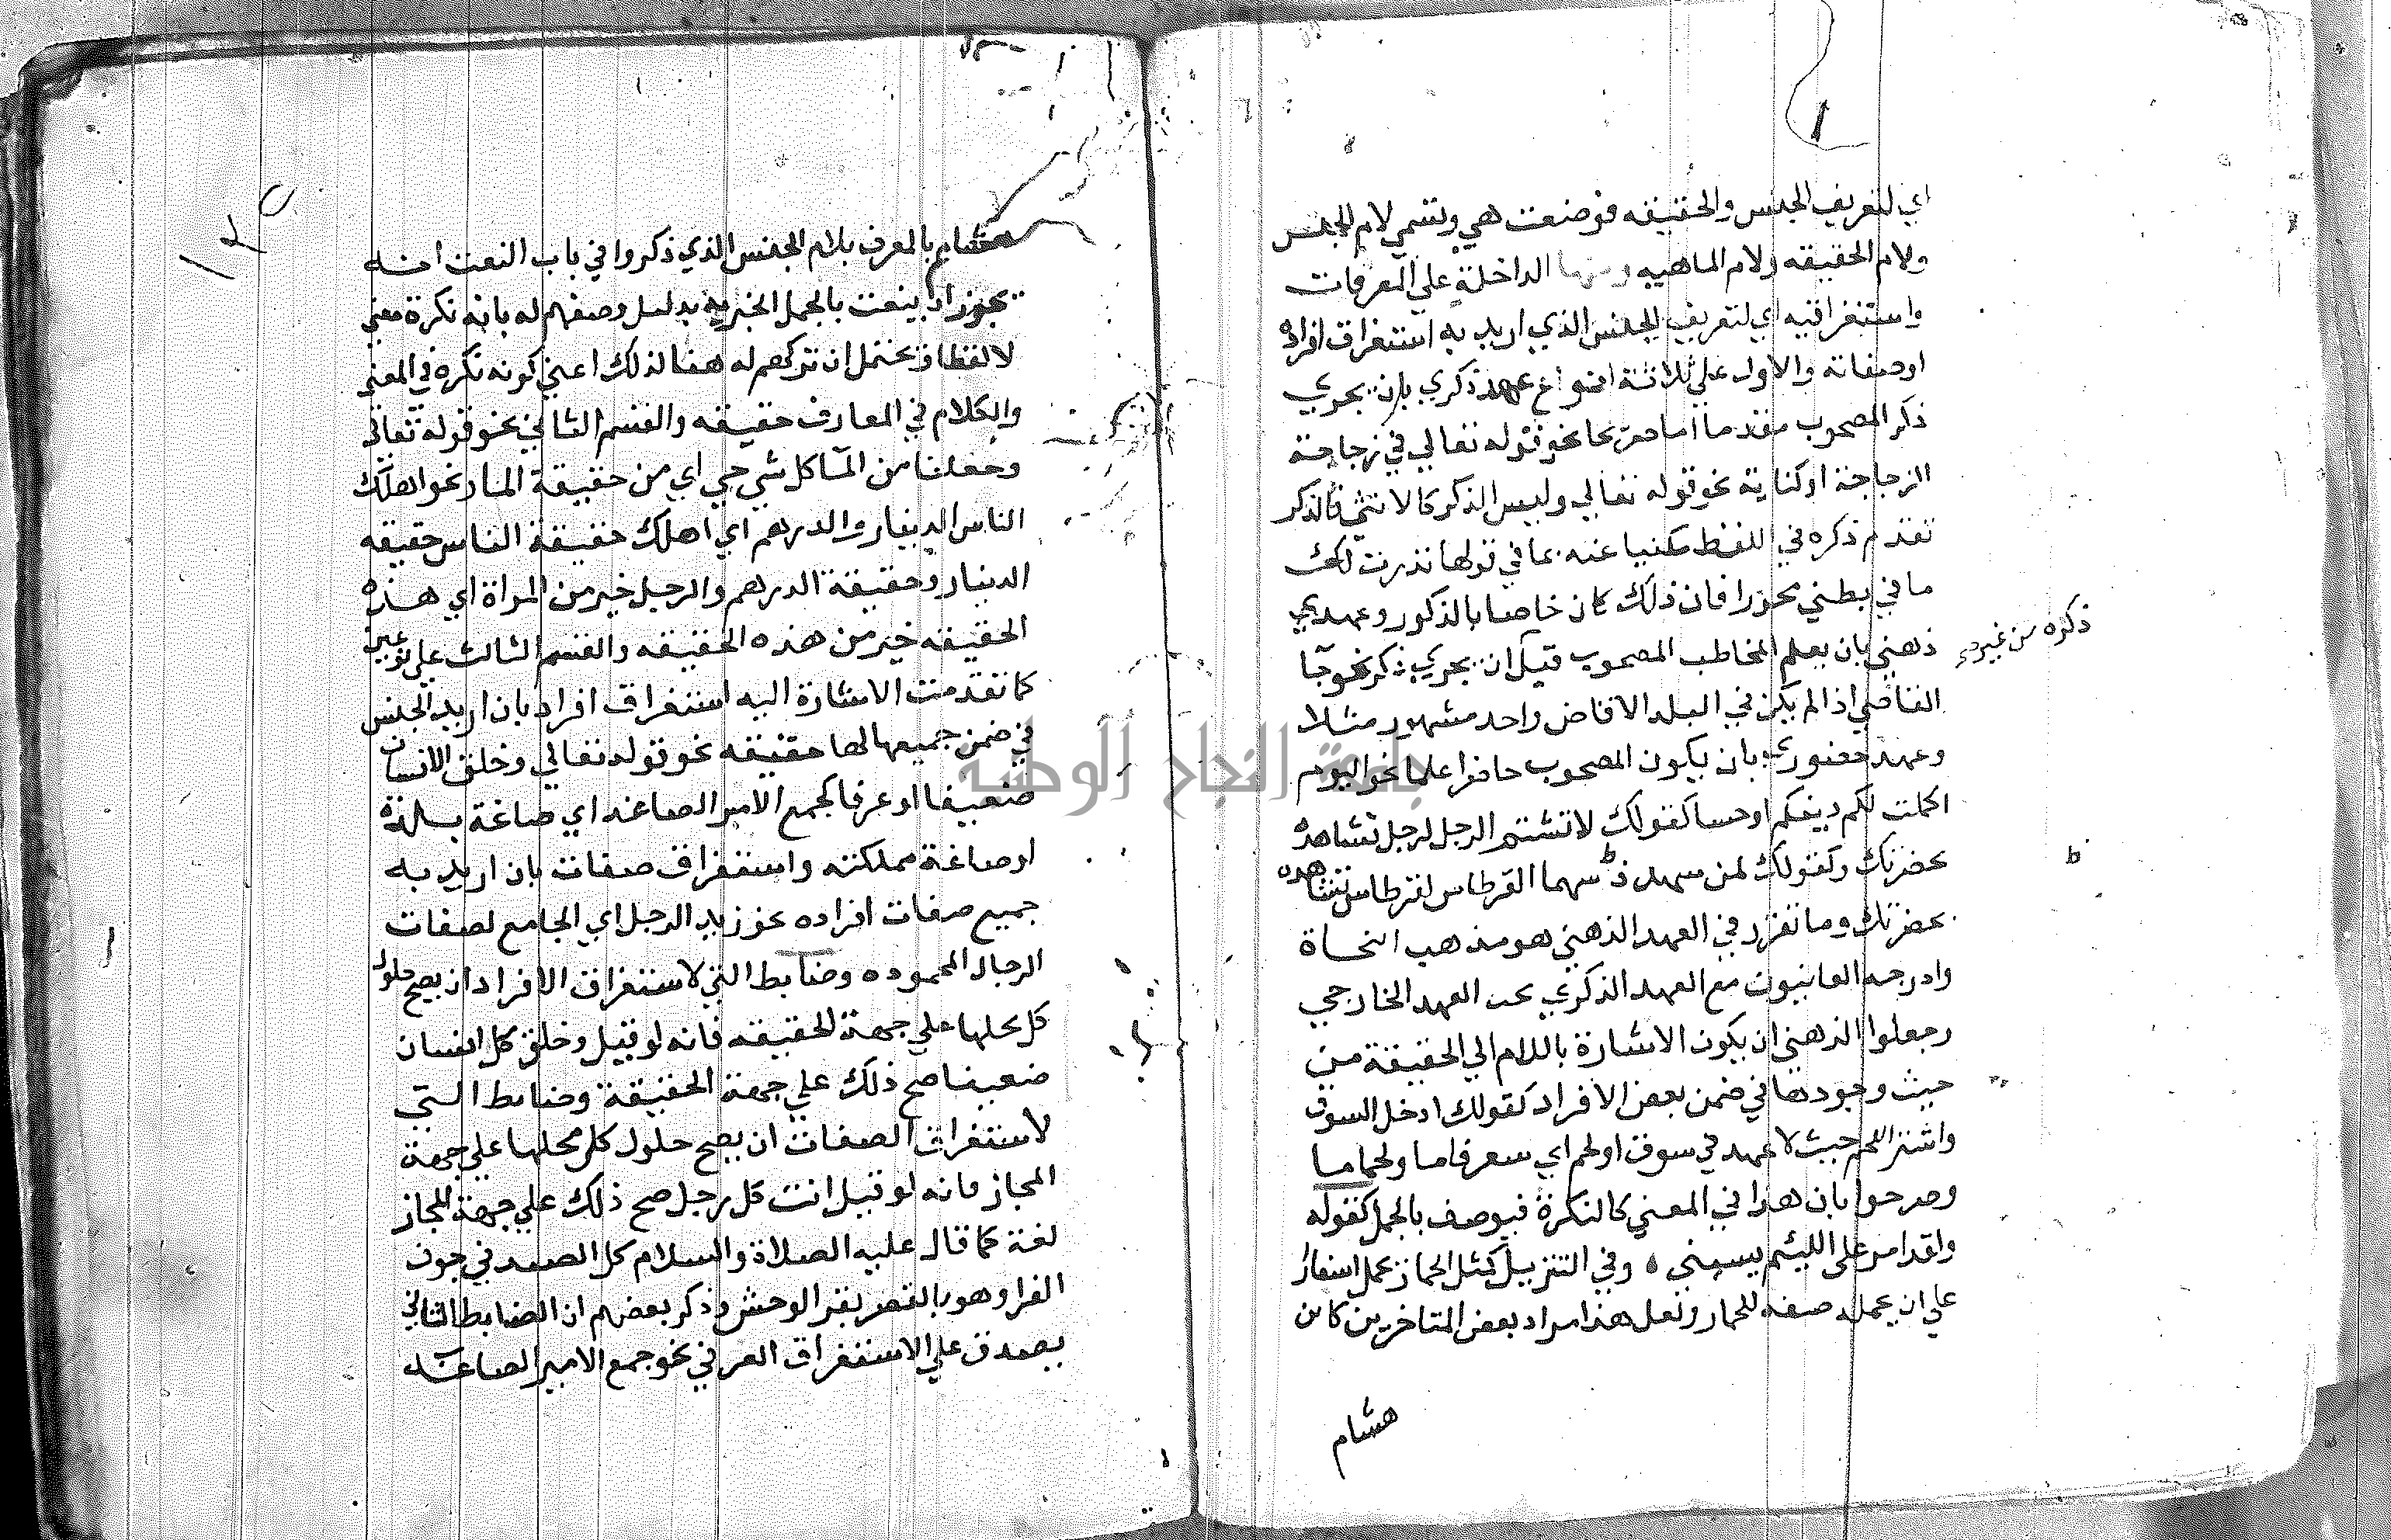 اي لتعريف الجنس والحقيقه فوضعت هي وتسمي لام الجنس
ولام الحقيقه ولام الماهيه الداخلة علي المعرفات
واستغراقيه اي لتعريف الجنس الذي اريد به استغراق افراده
اوصفاته والاول علي ثلاثة انواع عهد ذكري بان يجري
ذكر المصحوب مقدما اما صريحا نحو قوله تعالي في زجاجة
الزجاجة اوكناية نحو قوله تعالي وليس الذكر كالانثي فالذكر
تقدم ذكره في اللفظ مكنيا عنه بما في قولها نذرت لك
ما في بطني محررا فان ذلك كان خاصا بالذكور وعهدي
ذكره من غير
ذهني بان يعلم المخاطب المصحوب قبل ان يجري ذكر نحو جا
القاضي اذا لم يكن في البلد الا قاض واحد مشهور مثلا
وعهد حضوري بان يكون المصحوب حاضرا علما نحو اليوم
اكملت لكم دينكم اوحسا كقولك لا تشتم الرجل لرجل تشاهده
بحضرتك وكقولك لمن سدد سهما القرطاس لقرطاس تشاهده
بحضرتك وما تقرر في العهد الذهني هو مذهب النحاة
وادرجه البيانيون مع العهد الذكري تحت العهد الخارجي
وجعلوا الذهني ان يكون الاشارة باللام الي الحقيقة من
حيث وجودها في ضمن بعض الافراد كقولك ادخل السوق
واشتر اللحم حيث لا عهد في سوق اولحم اي سعر فاما ولحما ما
وصرحوا بان هذا في المعني كالنكرة فيوصف بالجمل كقوله
ولقد امر على اللئيم يسبني ٥ وفي التنزيل كمثل الحمار يحمل اسفارا
علي ان يحمل صفه للحمار ولعل هذا مراد بعض المتاخرين كابن
هشام
١٢٥
هشام بالمعرف بلام الجنس الذي ذكروا في باب النعت انه
يجوز ان ينعت بالجمل الخبريه بدليل وصفهم له بانه نكرة معني
لا لفظا ويحتمل ان تركهم له هنا لذلك اعني كونه نكره في المعني
والكلام في المعارف حقيقه والقسم الثاني نحو قوله تعالي
وجعلنا من المآ كل شي حي اي من حقيقة الماء ونحو اهلك
الناس الدينار والدرهم اي اهلك حقيقة الناس حقيقه
الدينار وحقيقة الدرهم والرجل خير من المراة اي هذه
الحقيقه خير من هذه الحقيقه والقسم الثالث علي نوعين
كما تقدمت الاشارة اليه استغراق افراد بان اريد الجنس
في ضمن جميعها لها حقيقه نحو قوله تعالي وخلق الانسان
ضعيفا اوعرفا كجمع الامير الصاغه اي صاغة بلده
اوصاغة مملكته واستغراق صفات بان اريد به
جميع صفات افراده نحو زيد الرجل اي الجامع لصفات
الرجال المحموده وضابط التي لاستغراق الافراد ان يصح حلول
كل محلها علي جهة الحقيقه فانه لو قيل وخلق كل انسان
ضعيفا صح ذلك علي جهة الحقيقة وضابط التي
لاستغراق الصفات ان يصح حلول كل محلها علي جهة
المجاز فانه لو قيل انت كل رجل صح ذلك علي جهة المجاز
لغة كما قال عليه الصلاة والسلام كل الصيد في جوف
الفرا وهو بالقصر بقر الوحش وذكر بعضهم ان الضابط الثاني
يصدق علي الاستغراق العرفي نحو جمع الامير الصاغه
جامعة النجاح الوطنية